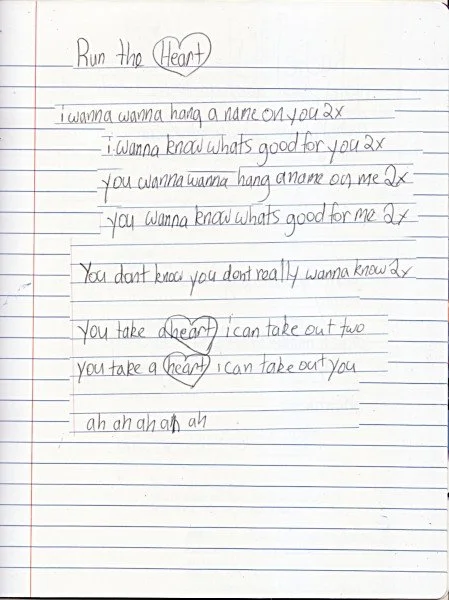 Run the Heart
i wanna wanna hang a name on you 2x
i wanna know whats good for you 2x
you wanna wanna hang a name on me 2x
you wanna know whats good for me 2x
You dont know you dont really wanna know 2x
you take a heart i can take out two
you take a heart i can take out you
ah ah ah ah ah